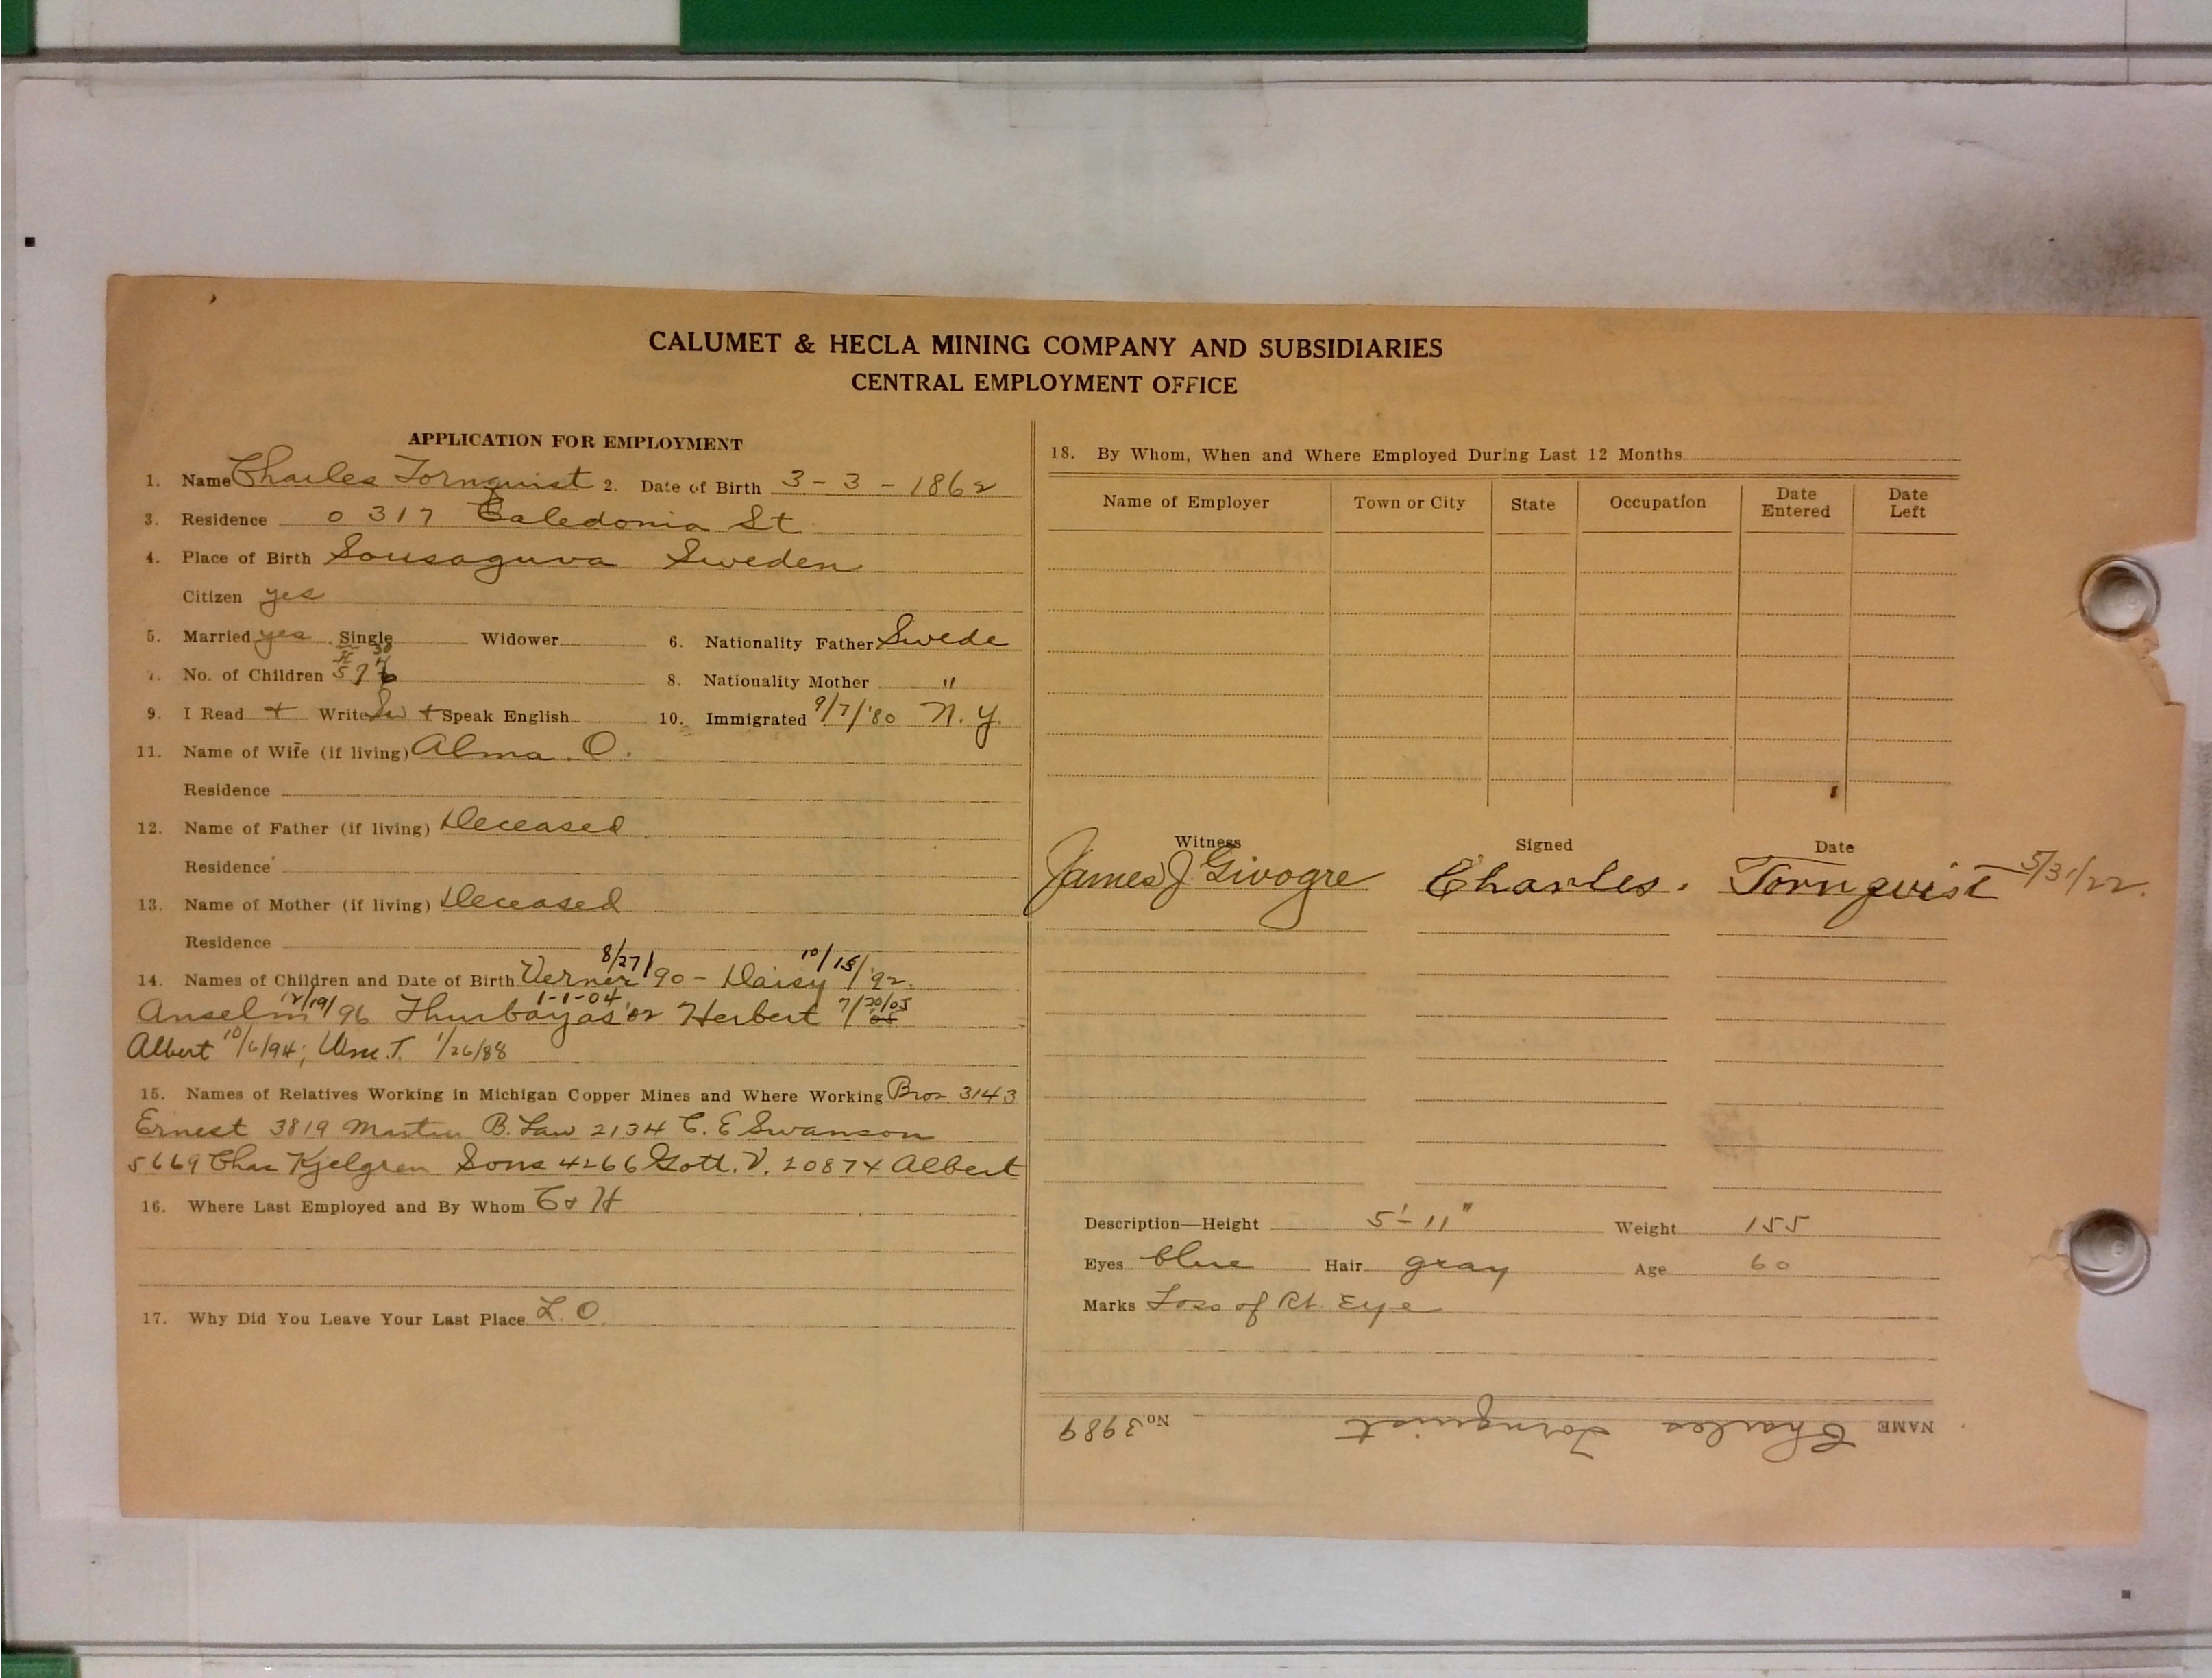 CALUMET & HECLA MINING COMPANY AND SUBSIDIARIES
CENTRAL EMPLOYMENT OFFICE
APPLICATION FOR EMPLOYMENT
1. Name Charles Tornquist 2. Date of Birth 3-3-1862
3. Residence 0 317 Caledonia St
4. Place of Birth Sousaguva Sweden
Citizen yes
5. Married yes Single Widower 6. Nationality Father Swede
7. No. of Children 8. Nationality Mother "
9. I Read + Write Sw + Speak English 10. Immigrated 9/7/'80 N.Y.
11. Name of Wife (if living) Alma O.
Residence
12. Name of Father (if living) Deceased
Residence
13. Name of Mother (if living) Deceased
Residence
14. Names of Children and Date of Birth Verner 8/27/90 - Daisy 10/15/'92.
Anselm 12/19/96 1-1-04 '02 Herbert 7/20/05
Albert 10/6/94; Wm. T. 1/26/88
15. Names of Relatives Working in Michigan Copper Mines and Where Working Bros 3143
Ernest 3819 Martin B. Law 2134 C. E Swanson
5669 Chas Kjelgren Sons 4266 Gott. V. 20874 Albert
16. Where Last Employed and By Whom C & H
17. Why Did You Leave Your Last Place L. O.
18. By Whom, When and Where Employed During Last 12 Months
Name of Employer Town or City State Occupation Date Entered Date Left
Witness Signed Date
James J. Givogre Charles. Tornquist 5/31/22.
Description—Height 5'-11" Weight 155
Eyes blue Hair gray Age 60
Marks Loss of Rt. Eye
NAME Charles Tornquist No. 3989